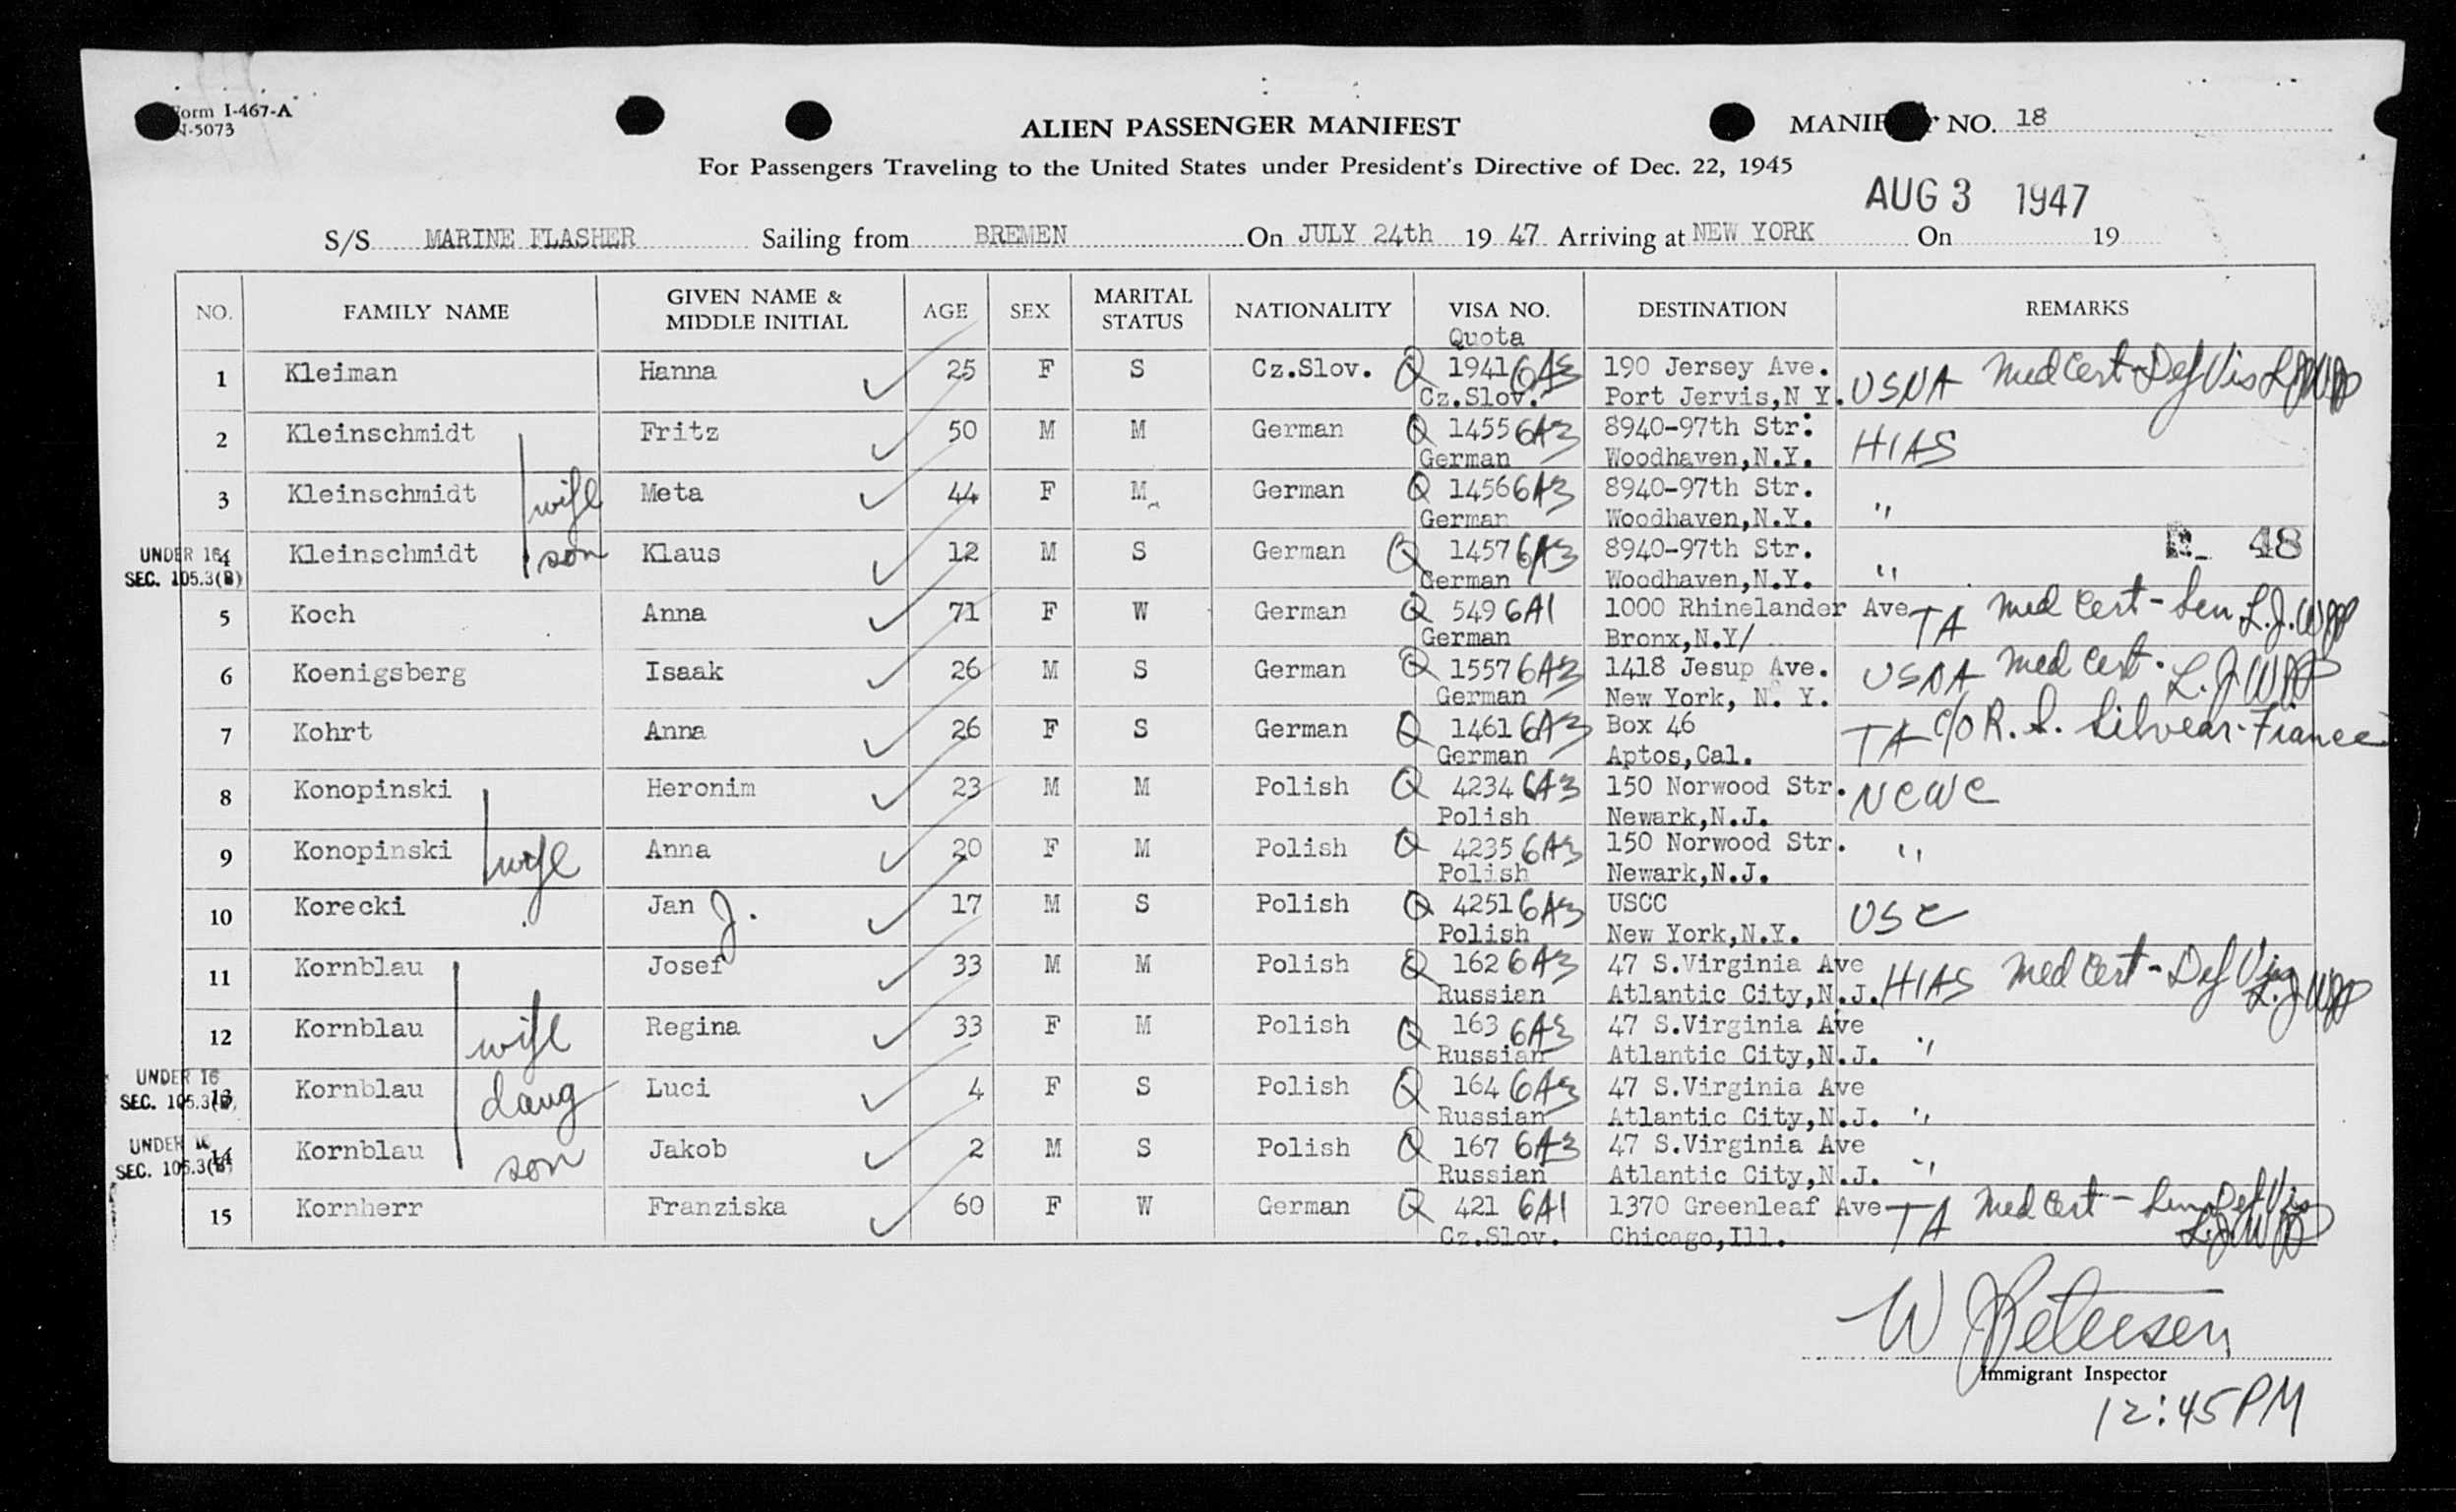 Form I-467-A
N-5073
ALIEN PASSENGER MANIFEST
MANIFEST NO. 18
For Passengers Traveling to the United States under President's Directive of Dec. 22, 1945
AUG 3 1947
S/S MARINE FLASHER Sailing from BREMEN On JULY 24th 19 47 Arriving at NEW YORK On 19
NO. FAMILY NAME GIVEN NAME & MIDDLE INITIAL AGE SEX MARITAL STATUS NATIONALITY VISA NO. Quota DESTINATION REMARKS
1 Kleiman Hanna 25 F S Cz.Slov. Q 1941 6A3 190 Jersey Ave. USNA Med Cert - Def Vis
Cz.Slov. Port Jervis,N Y.
2 Kleinschmidt Fritz 50 M M German Q 1455 6A3 8940-97th Str: HIAS
German Woodhaven,N.Y.
3 Kleinschmidt wife Meta 44 F M German Q 1456 6A3 8940-97th Str. "
German Woodhaven,N.Y.
UNDER 16 4 Kleinschmidt son Klaus 12 M S German Q 1457 6A3 8940-97th Str. " 48
SEC. 105.3(B) German Woodhaven,N.Y.
5 Koch Anna 71 F W German Q 549 6A1 1000 Rhinelander Ave TA Med Cert - Sen L.J.W
German Bronx,N.Y/
6 Koenigsberg Isaak 26 M S German Q 1557 6A3 1418 Jesup Ave. USNA Med Cert. L.J.W
German New York, N. Y.
7 Kohrt Anna 26 F S German Q 1461 6A3 Box 46 TA c/o R. S. Silvear - Fiance
German Aptos,Cal.
8 Konopinski Heronim 23 M M Polish Q 4234 6A3 150 Norwood Str. NCWC
Polish Newark,N.J.
9 Konopinski wife Anna 20 F M Polish Q 4235 6A3 150 Norwood Str. "
Polish Newark,N.J.
10 Korecki Jan J. 17 M S Polish Q 4251 6A3 USCC USC
Polish New York,N.Y.
11 Kornblau Josef 33 M M Polish Q 162 6A3 47 S.Virginia Ave HIAS Med Cert - Def Vis
Russian Atlantic City,N.J.
12 Kornblau wife Regina 33 F M Polish Q 163 6A3 47 S.Virginia Ave "
Russian Atlantic City,N.J.
UNDER 16 13 Kornblau daug Luci 4 F S Polish Q 164 6A3 47 S.Virginia Ave "
SEC. 105.3(B) Russian Atlantic City,N.J.
UNDER 16 14 Kornblau son Jakob 2 M S Polish Q 167 6A3 47 S.Virginia Ave "
SEC. 105.3(B) Russian Atlantic City,N.J.
15 Kornherr Franziska 60 F W German Q 421 6A1 1370 Greenleaf Ave TA Med Cert - Sen Def Vis
Cz.Slov. Chicago,Ill.
W J Petersen
Immigrant Inspector
12:45 PM